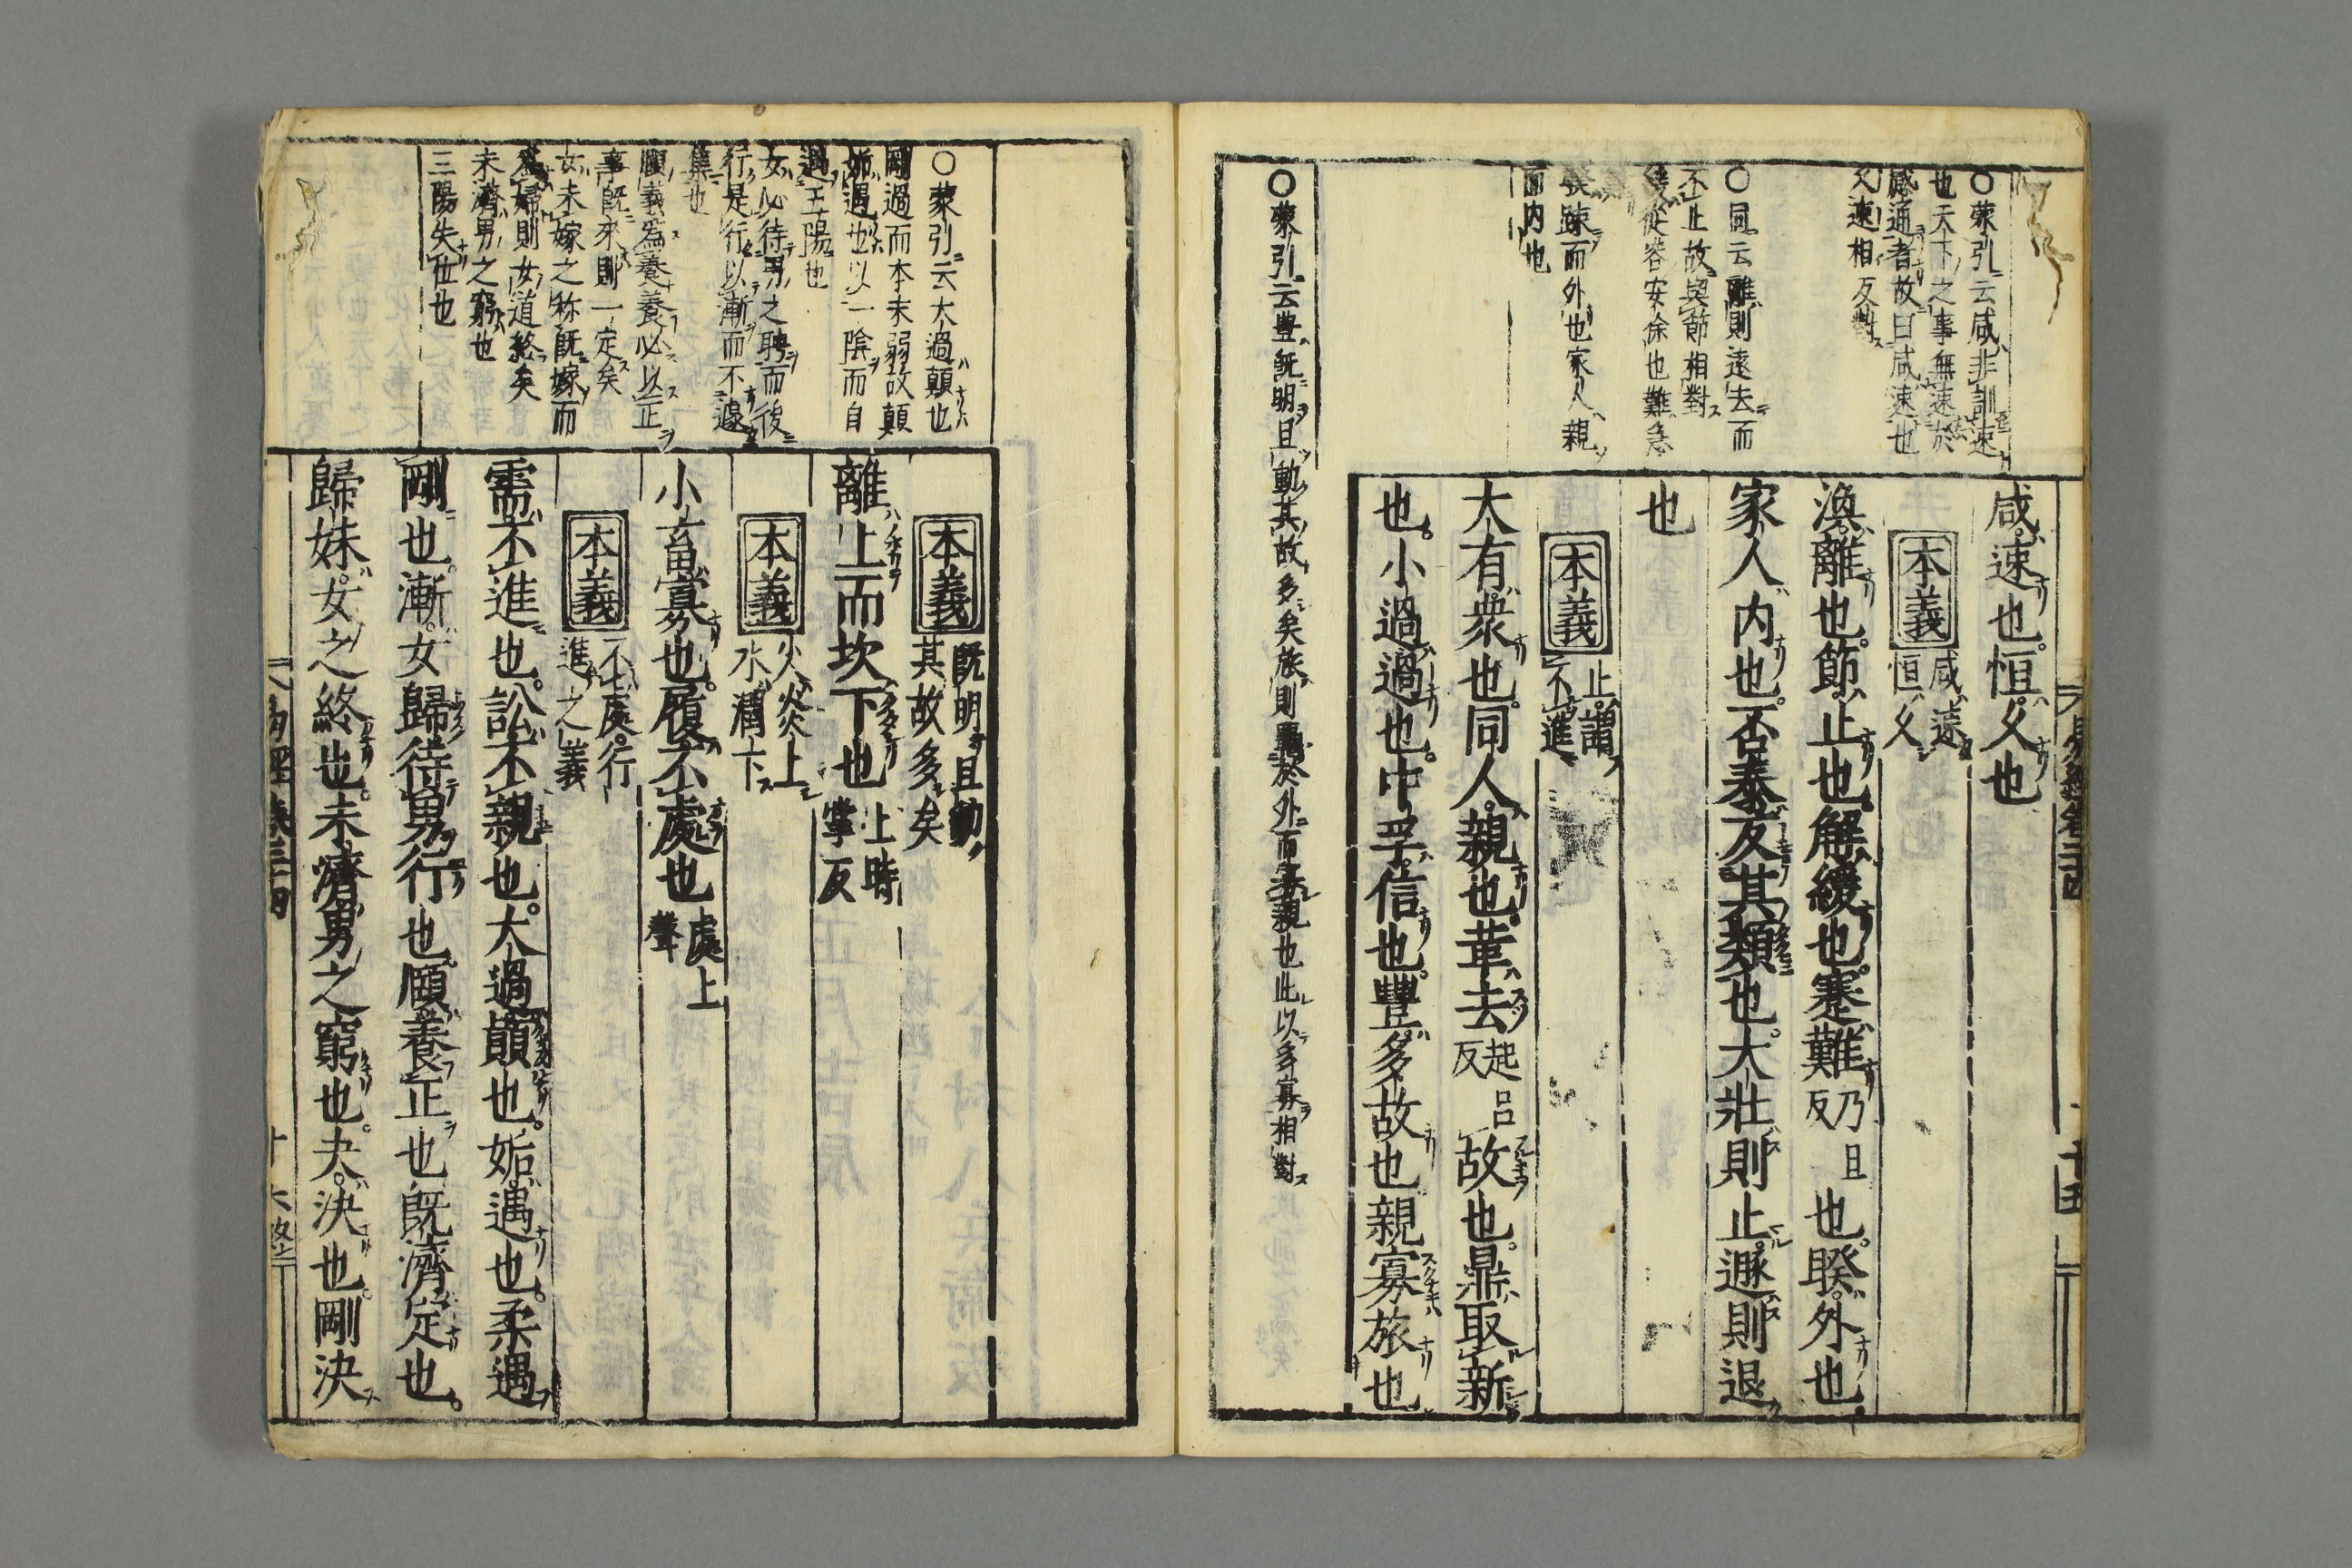 ○蒙引云咸非訓速
也天下之事無速於
感通者故曰咸速也
久速相反對
○同云離則遠去而
不止故與節相對
從容安徐也難急
疎而外也家人親
而内也
咸速也恒久也
本義
咸速
恒久
渙離也節止也解緩也蹇難
乃旦
反
也睽外也
家人内也否泰反其類也大壯則止遯則退
也
本義
止謂
不進
大有衆也同人親也革去
起呂
反
故也鼎取新
也小過過也中孚信也豐多故也親寡旅也
○蒙引云豊既明且動其故多矣旅則覊於外而寡親也此以多寡相對
○蒙引云大過顛也
剛過而本末弱故顛
姤遇也以一陰而自
遇五陽也
女必待男之聘而後
行是行以漸而不遽
也
頤義爲養養必以正
事既來則一定矣
女未嫁之称既嫁而
爲婦則女道終矣
未濟男之窮也
三陽失位也
本義
既明且動
其故多矣
離上而坎下也
上時
掌反
本義
火炎上
水潤下
小畜寡也履不處也
處上
聲
本義
不處行
進之義
需不進也訟不親也大過顛也姤遇也柔遇
剛也漸女歸待男行也頤養正也既濟定也
歸妹女之終也未濟男之窮也夬決也剛決